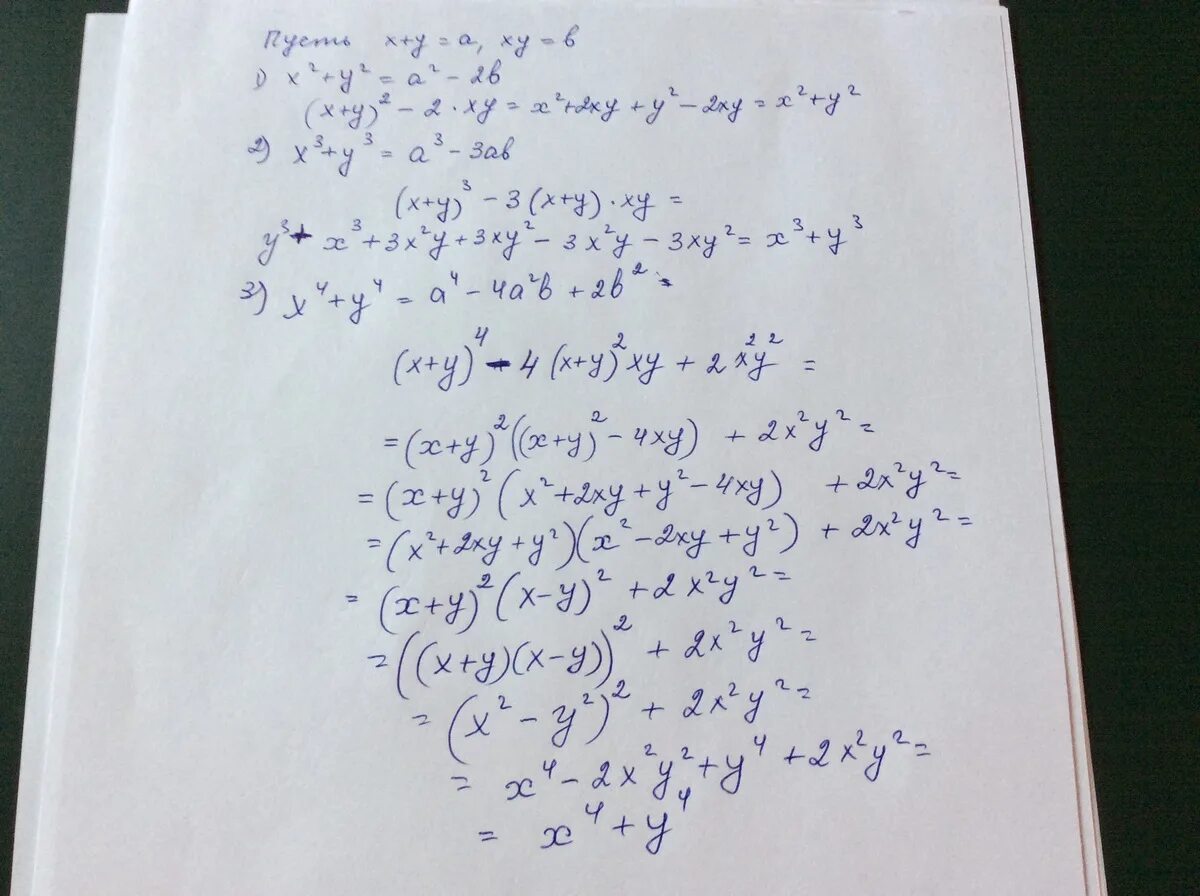 Пусть x+y = a, xy = b
1) x² + y² = a² - 2b
(x+y)² - 2 · xy = x² + 2xy + y² - 2xy = x² + y²
2) x³ + y³ = a³ - 3ab
(x+y)³ - 3 (x+y) · xy =
y³ + x³ + 3x²y + 3xy² - 3x²y - 3xy² = x³ + y³
3) x⁴ + y⁴ = a⁴ - 4a²b + 2b²
(x+y)⁴ - 4 (x+y)² xy + 2x²y² =
= (x+y)² ((x+y)² - 4xy) + 2x²y² =
= (x+y)² (x² + 2xy + y² - 4xy) + 2x²y² =
= (x² + 2xy + y²)(x² - 2xy + y²) + 2x²y² =
= (x+y)² (x-y)² + 2x²y² =
= ((x+y)(x-y))² + 2x²y² =
= (x² - y²)² + 2x²y² =
= x⁴ - 2x²y² + y⁴ + 2x²y² =
= x⁴ + y⁴